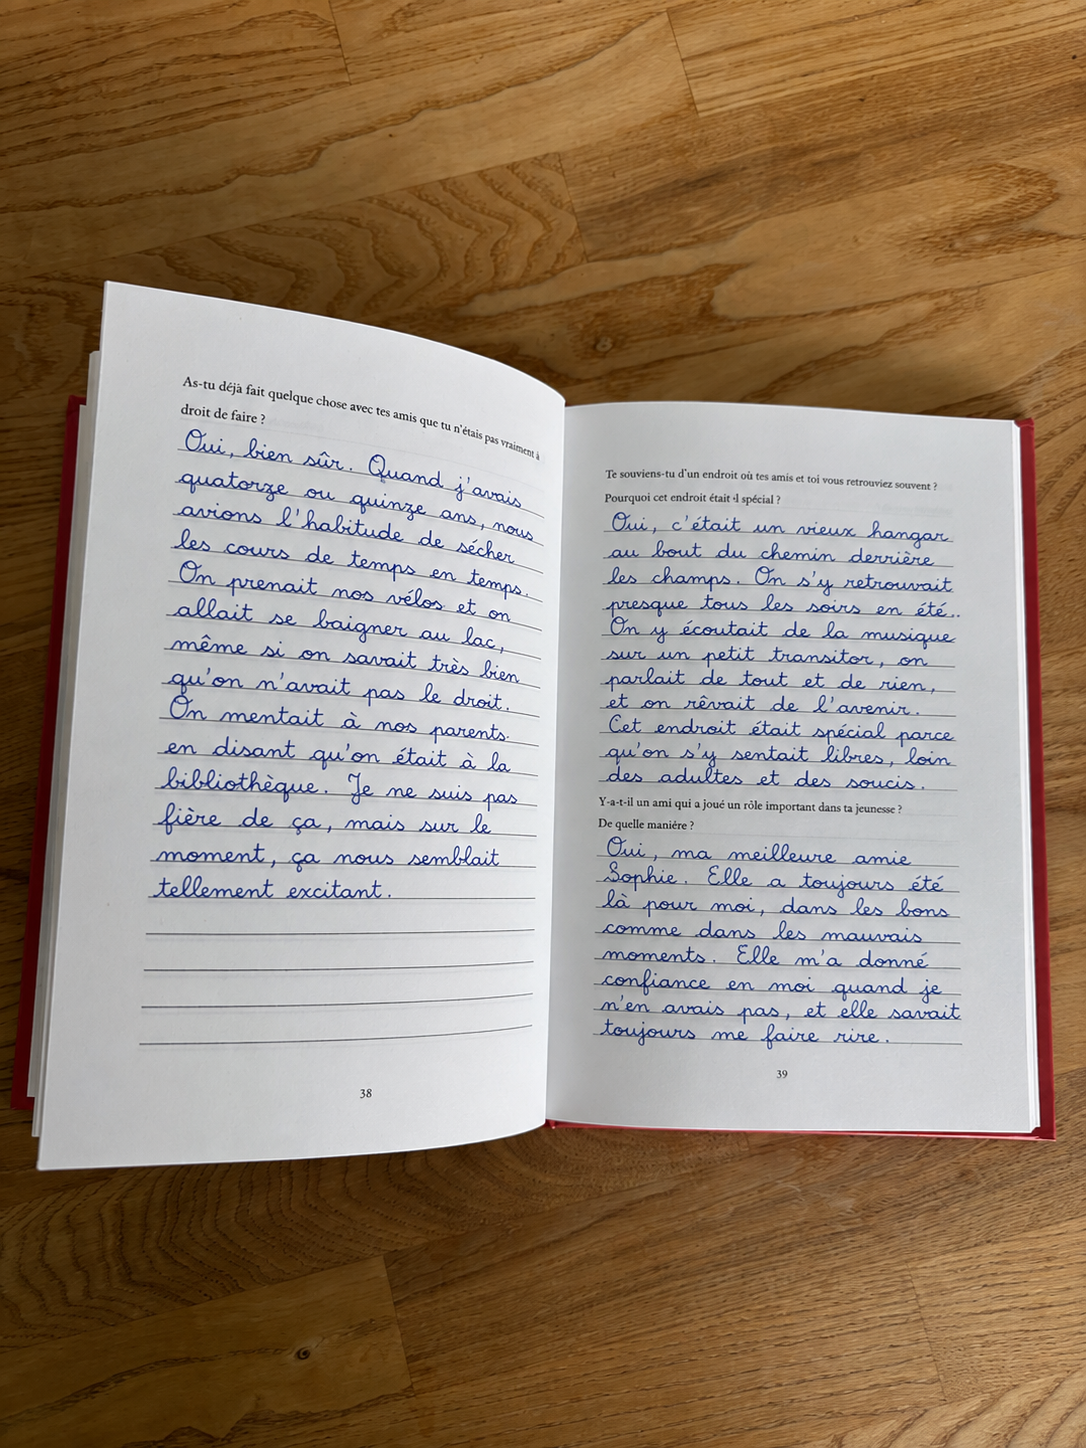 As-tu déjà fait quelque chose avec tes amis que tu n'étais pas vraiment à
droit de faire ?
Oui, bien sûr. Quand j'avais
quatorze ou quinze ans, nous
avions l'habitude de sécher
les cours de temps en temps.
On prenait nos vélos et on
allait se baigner au lac,
même si on savait très bien
qu'on n'avait pas le droit.
On mentait à nos parents
en disant qu'on était à la
bibliothèque. Je ne suis pas
fière de ça, mais sur le
moment, ça nous semblait
tellement excitant.
38
Te souviens-tu d'un endroit où tes amis et toi vous retrouviez souvent ?
Pourquoi cet endroit était-il spécial ?
Oui, c'était un vieux hangar
au bout du chemin derrière
les champs. On s'y retrouvait
presque tous les soirs en été..
On y écoutait de la musique
sur un petit transitor, on
parlait de tout et de rien,
et on rêvait de l'avenir.
Cet endroit était spécial parce
qu'on s'y sentait libres, loin
des adultes et des soucis.
Y-a-t-il un ami qui a joué un rôle important dans ta jeunesse ?
De quelle manière ?
Oui, ma meilleure amie
Sophie. Elle a toujours été
là pour moi, dans les bons
comme dans les mauvais
moments. Elle m'a donné
confiance en moi quand je
n'en avais pas, et elle savait
toujours me faire rire.
39